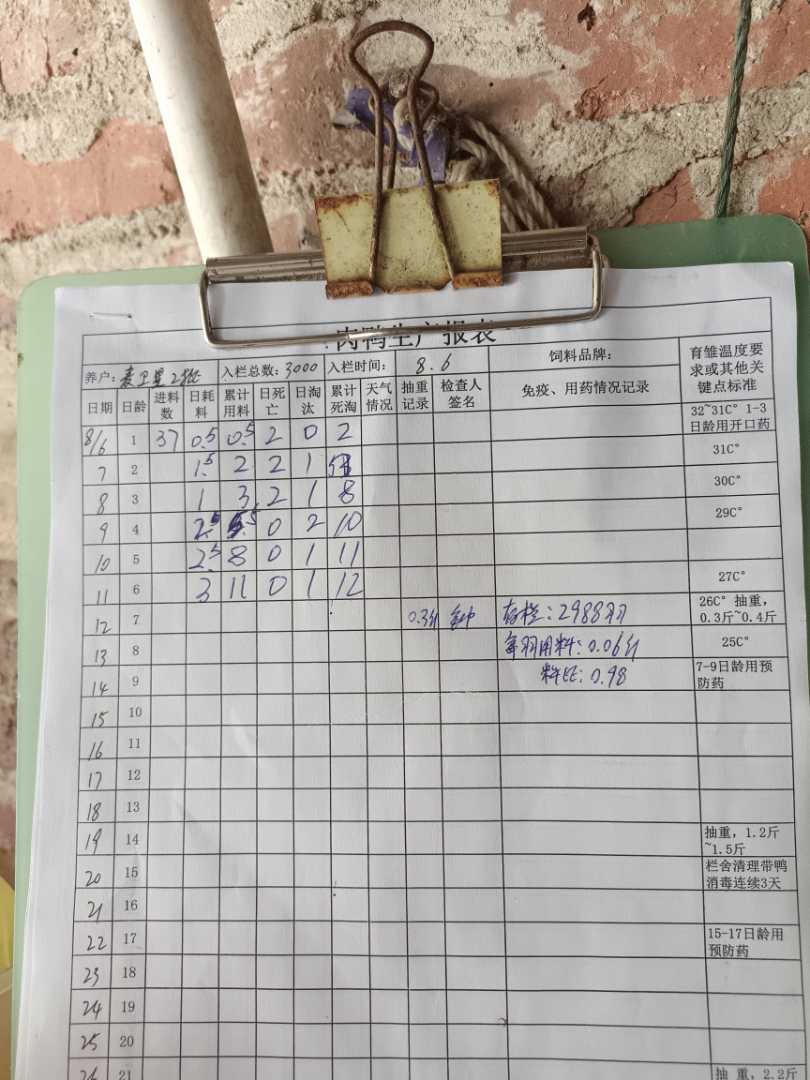 肉鸭生产报表
养户: 麦卫星2批 入栏总数: 3000 入栏时间: 8.6 饲料品牌: 育雏温度要求或其他关键点标准
日期 日龄 进料数 日耗料 累计用料 日死亡 日淘汰 累计死淘 天气情况 抽重记录 检查人签名 免疫、用药情况记录
8/6 1 37 0.5 0.5 2 0 2 32~31C° 1-3日龄用开口药
7 2 1.5 2 2 1 5 31C°
8 3 1 3 2 1 8 30C°
9 4 2.5 5.5 0 2 10 29C°
10 5 2.5 8 0 1 11
11 6 3 11 0 1 12 27C°
12 7 0.3斤 存栏: 2988羽 26C° 抽重，0.3斤~0.4斤
13 8 每羽用料: 0.06斤 25C°
14 9 料比: 0.98 7-9日龄用预防药
15 10
16 11
17 12
18 13
19 14 抽重，1.2斤~1.5斤
20 15 栏舍清理带鸭消毒连续3天
21 16
22 17 15-17日龄用预防药
23 18
24 19
25 20
26 21 抽重，2.2斤